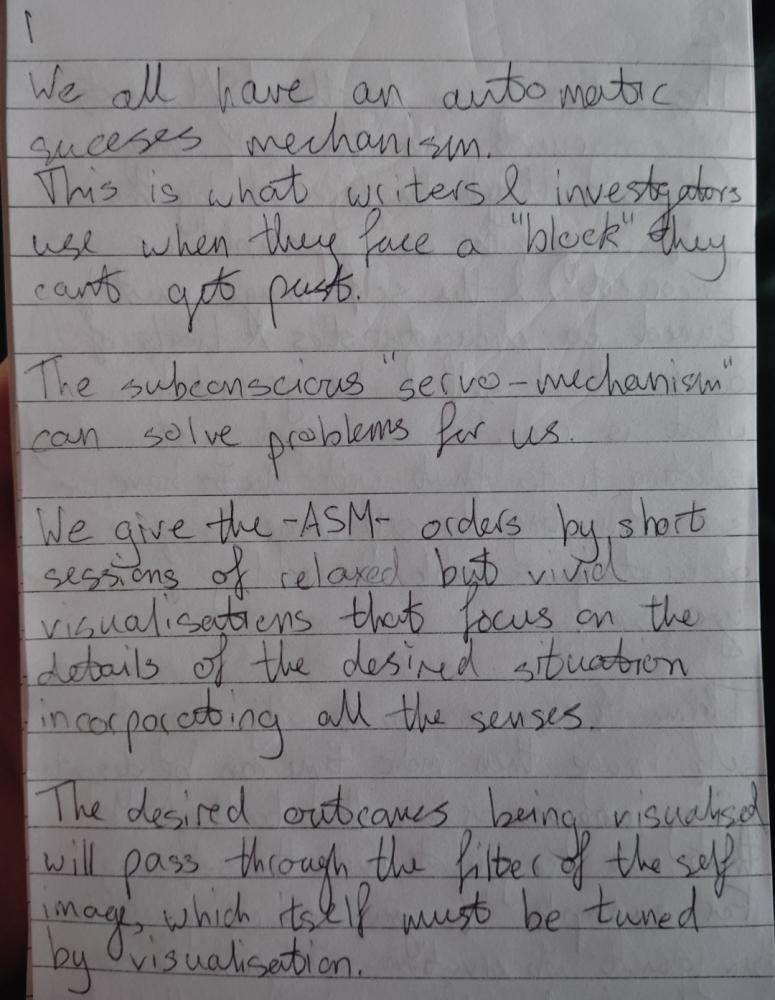 1
We all have an automatic
suceses mechanism.
This is what writers & investgators
use when they face a "block" they
cant get past.
The subconscious "servo-mechanism"
can solve problems for us.
We give the -ASM- orders by short
sessions of relaxed but vivid
visualisations that focus on the
details of the desired situation
incorporating all the senses.
The desired outcomes being visualised
will pass through the filter of the self
image, which itself must be tuned
by visualisation.